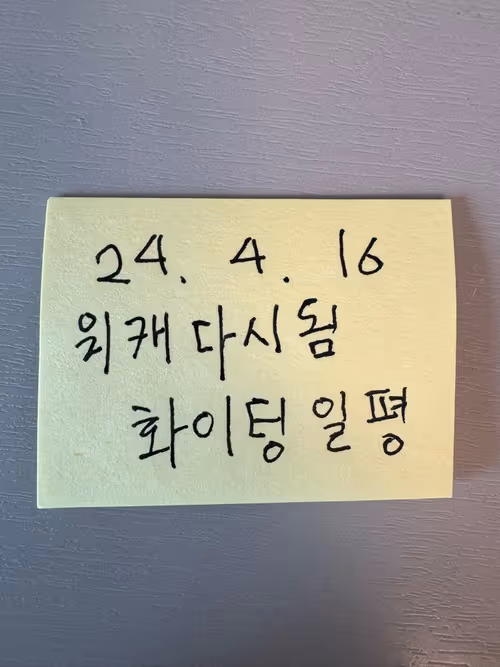 24. 4. 16
위캐 다시 됨
화이팅 일평